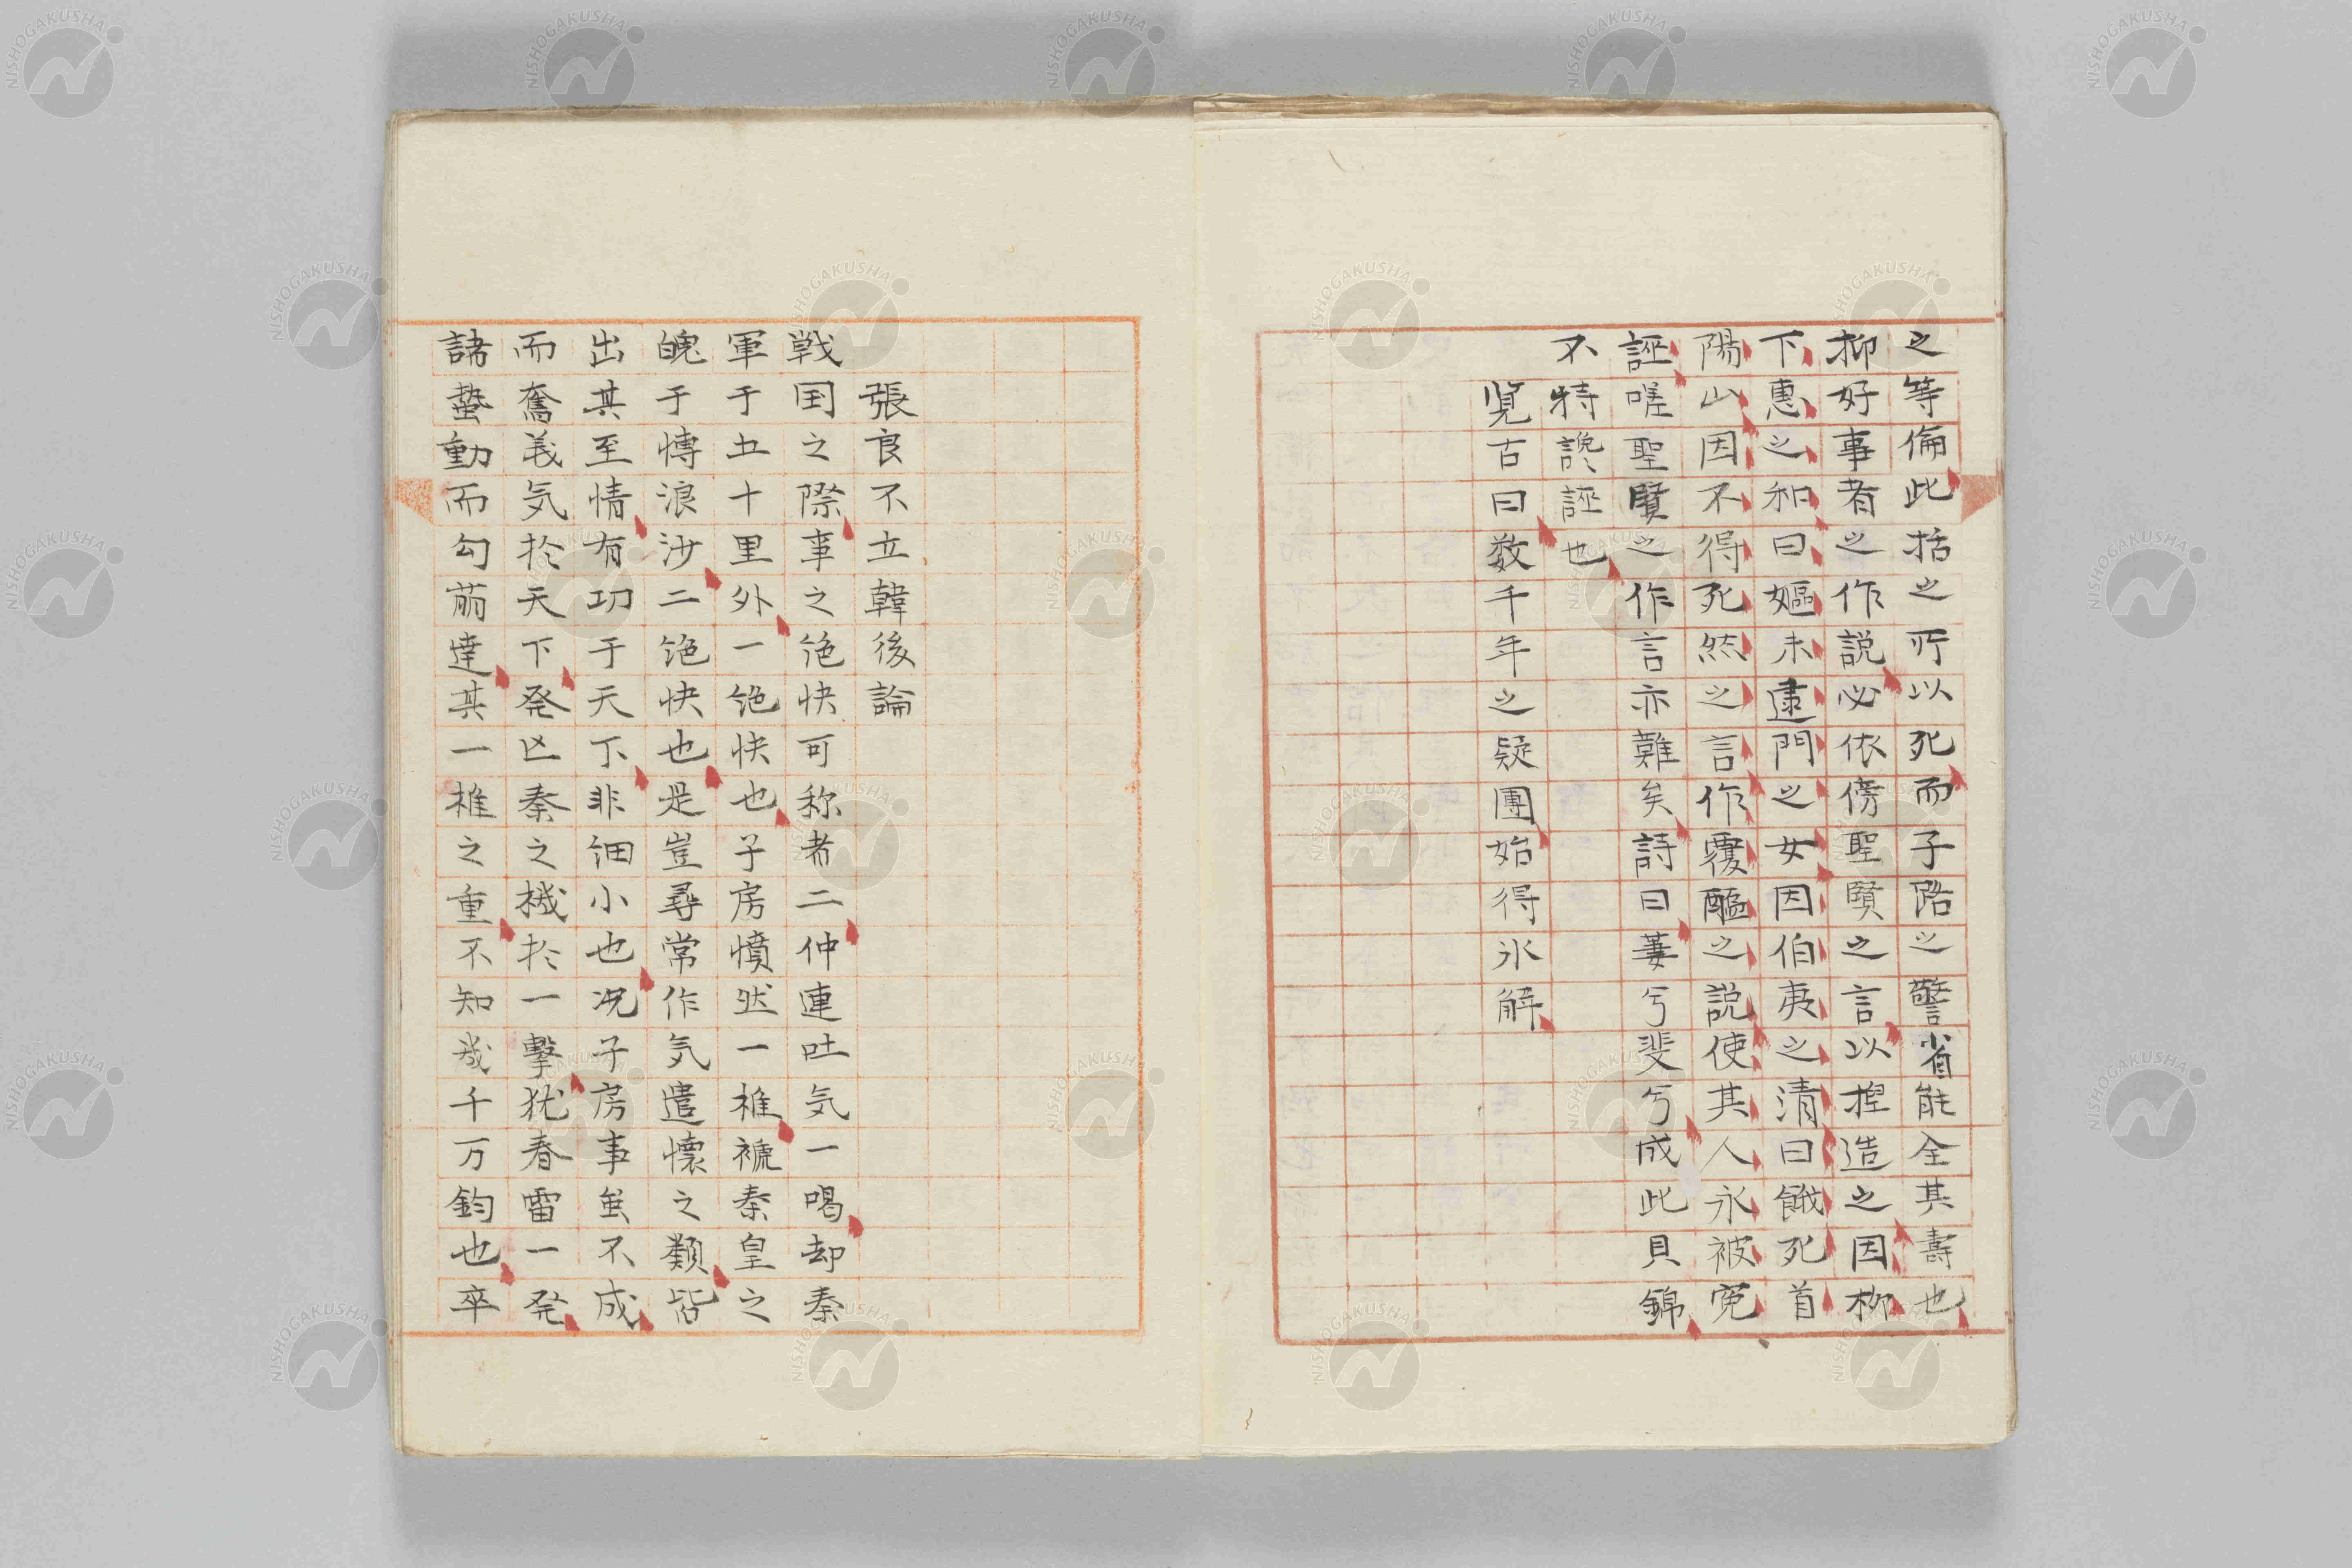 之等倫此括之所以死而子路之警省能全其壽也
抑好事者之作説必依傍聖賢之言以揑造之因柳
下惠之和曰嫗未逮門之女因伯夷之清曰餓死首
陽山因不得死然之言作覆醢之説使其人永被寃
誣嗟聖賢之作言亦難矣詩曰萋兮斐兮成此貝錦
不特讒誣也
覽古曰数千年之疑團始得氷解
張良不立韓後論
戦国之際事之絶快可称者二仲連吐気一喝却秦
軍于五十里外一絶快也子房憤然一椎褫秦皇之
魄于博浪沙二絶快也是豈尋常作気遣懷之類皆
出其至情有功于天下非細小也况子房事虽不成
而奮義気扵天下発亡秦之機扵一擊犹春雷一発
諸蟄動而勾萠達其一椎之重不知幾千万鈞也卒